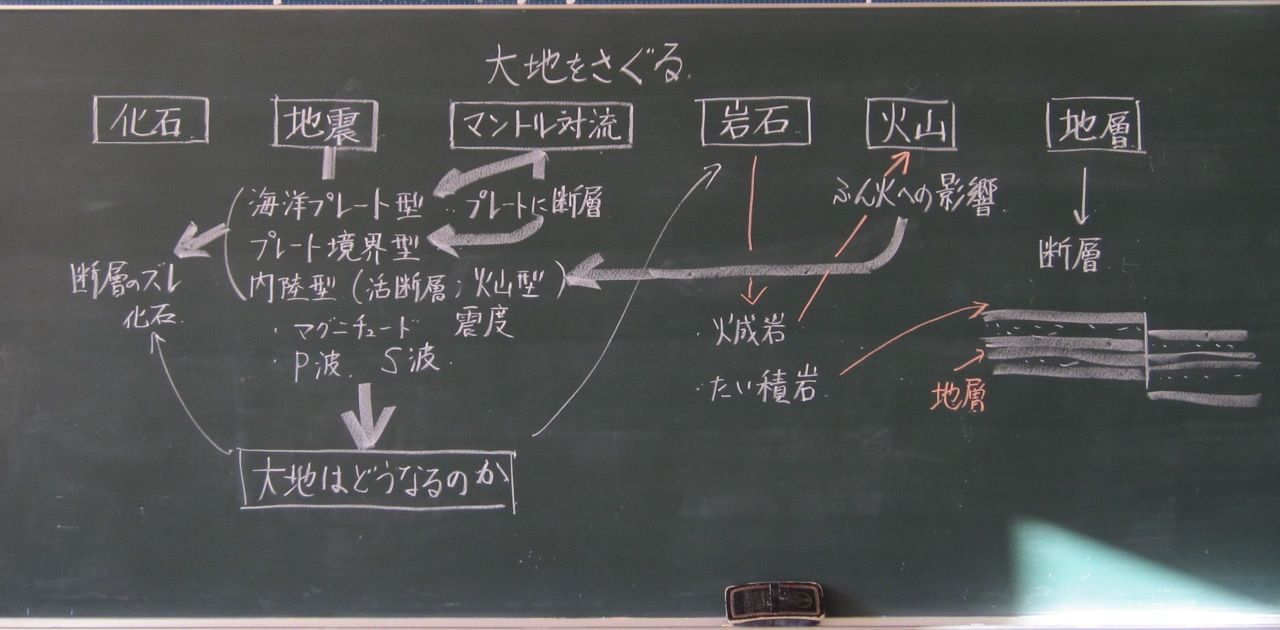 大地をさぐる
化石
地震
マントル対流
岩石
火山
地層
海洋プレート型
プレート境界型
内陸型(活断層;火山型)
・マグニチュード 震度
・P波、S波
プレートに断層
ふん火への影響
断層
断層のズレ
化石
・火成岩
・たい積岩
地層
大地はどうなるのか